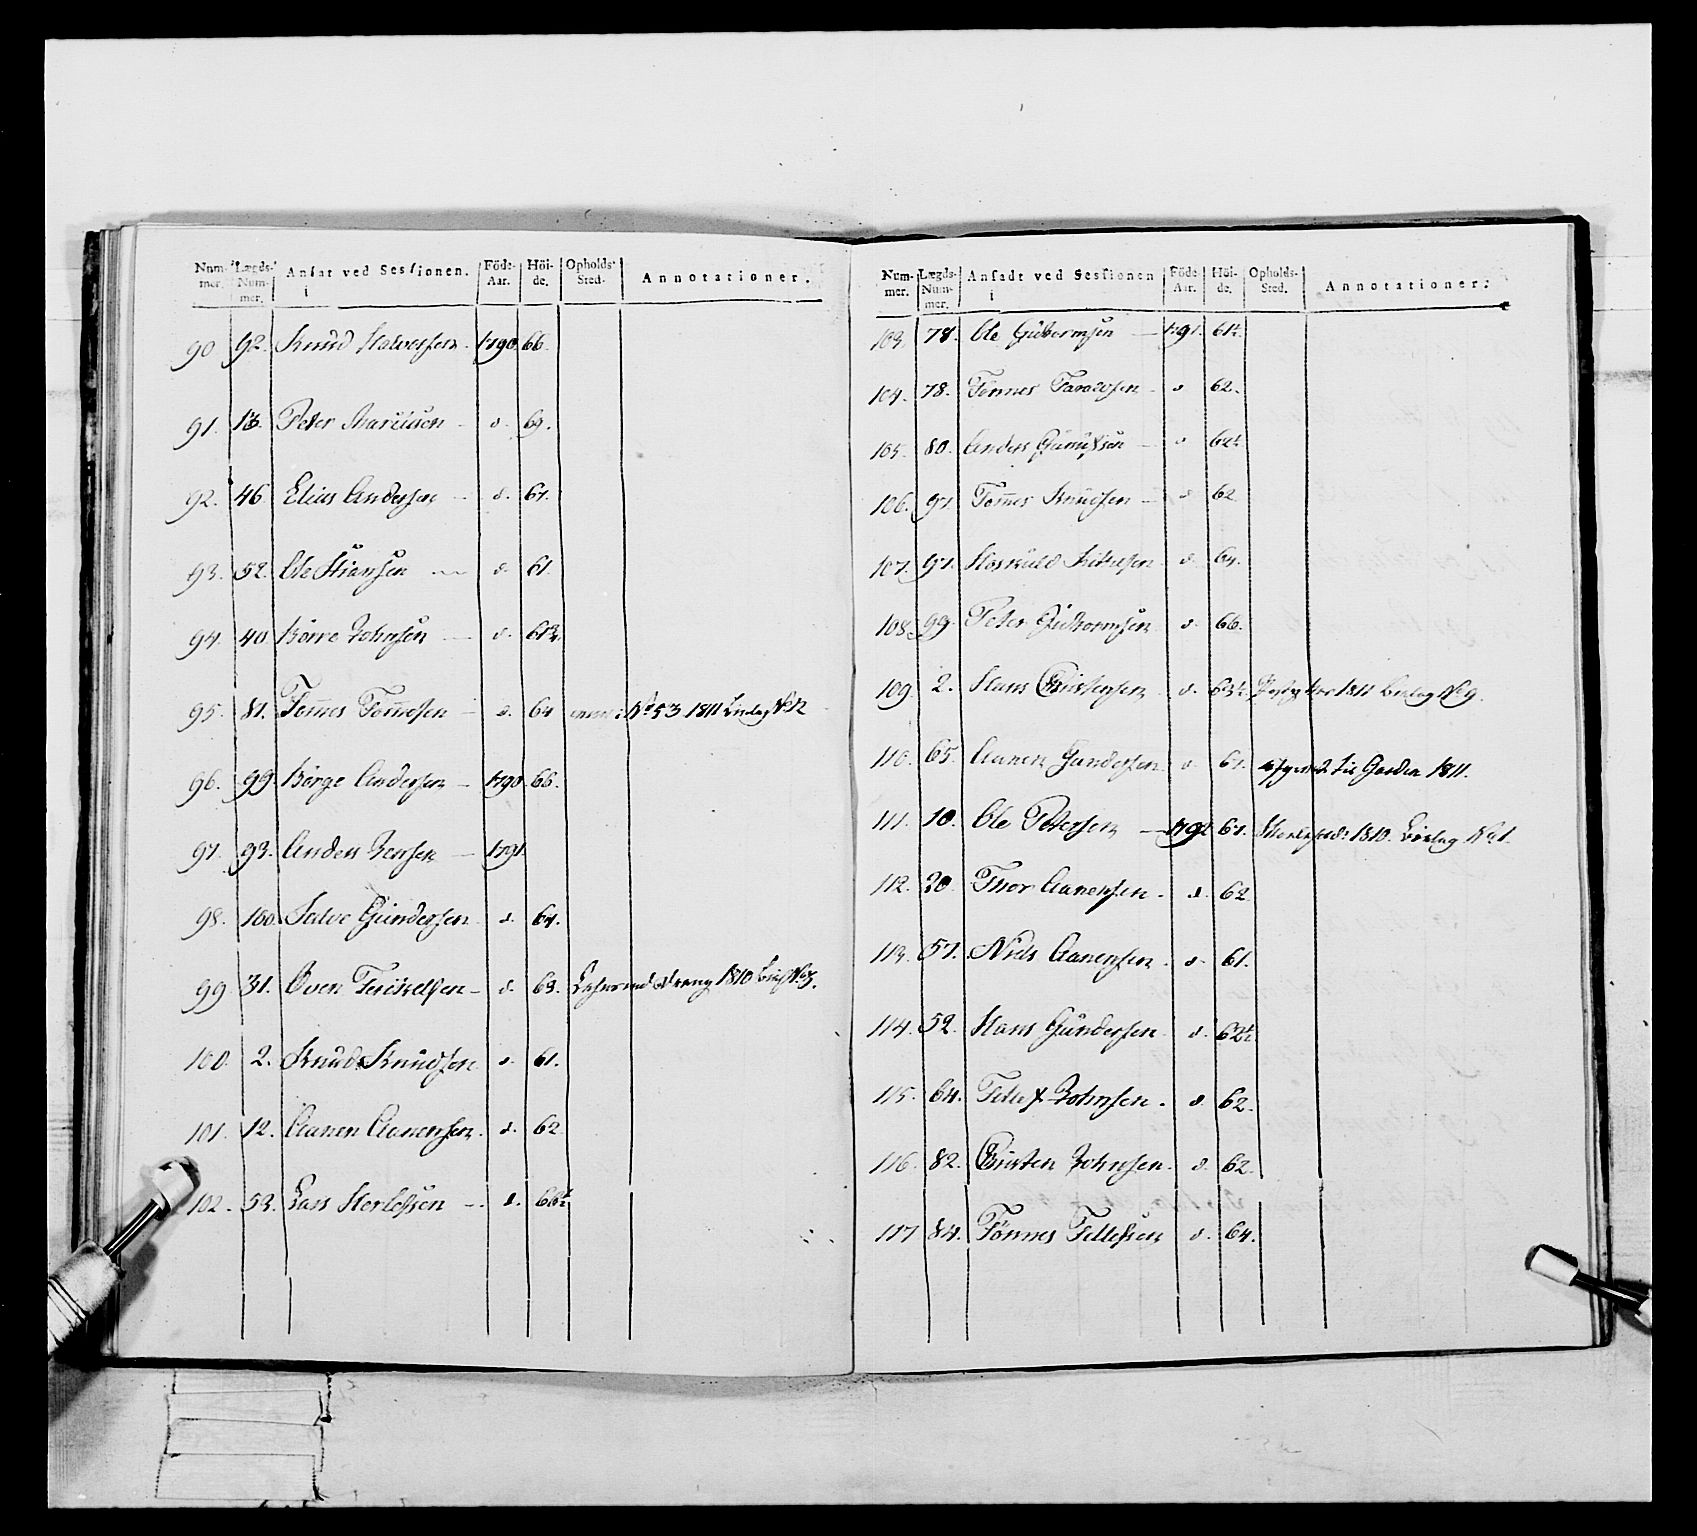 Num-mer. Lægds-Num-mer. Ansat ved Sessionen. Föde-Aar. Höi-de. Opholds-Sted. Annotationer.
90 92. Knud Halvorsen 1790 66.
91. 13. Peter d. 64.
92. 46 Elias Andersen d. 61.
93. 52. Ole d. 61.
94. 40. Börre Johnsen d.
95. 81. Tomes Tomesen d. 64 No 53 1811 No 12
96. 99. Börge Andersen 1790 66.
97. 93. Anders Jensen 1791.
98. 100. Salve Gundersen d. 64.
99 31. Oven Terkelsen d. 63. 1810
100. 2. Knud Knudsen d. 61.
101. 12. Aanen Aanensen. d. 62
102. 53. Lars Herlofsen d.
Num-mer. Lægds-Num-mer. Ansadt ved Sessionen Föde-Aar. Höi-de. Opholds-Sted. Annotationer.
103. 78. Ole Gutormsen 1791.
104. 78. Tönnes d 62.
105. 80. Anders d
106. 97. Tomes Knudsen d 62
107. 97. d. 64.
108. 99. Peter Gutormsen d. 66.
109 2. Hans Christensen d. 1811 No 9
110. 65. Aanen Gundersen d. 61. til Garden 1811.
111. 10. Ole Petersen 1792 61. 1810. No 1.
112. 20. Thor Aanensen. d. 62
113. 57. Niels Aanensen. d. 61.
114. 52. Hans Gundersen d.
115. 64. Johnsen. d. 62.
116. 82. Christen Johnsen. d. 62.
117 84. Tönnes Tellefsen d. 64.